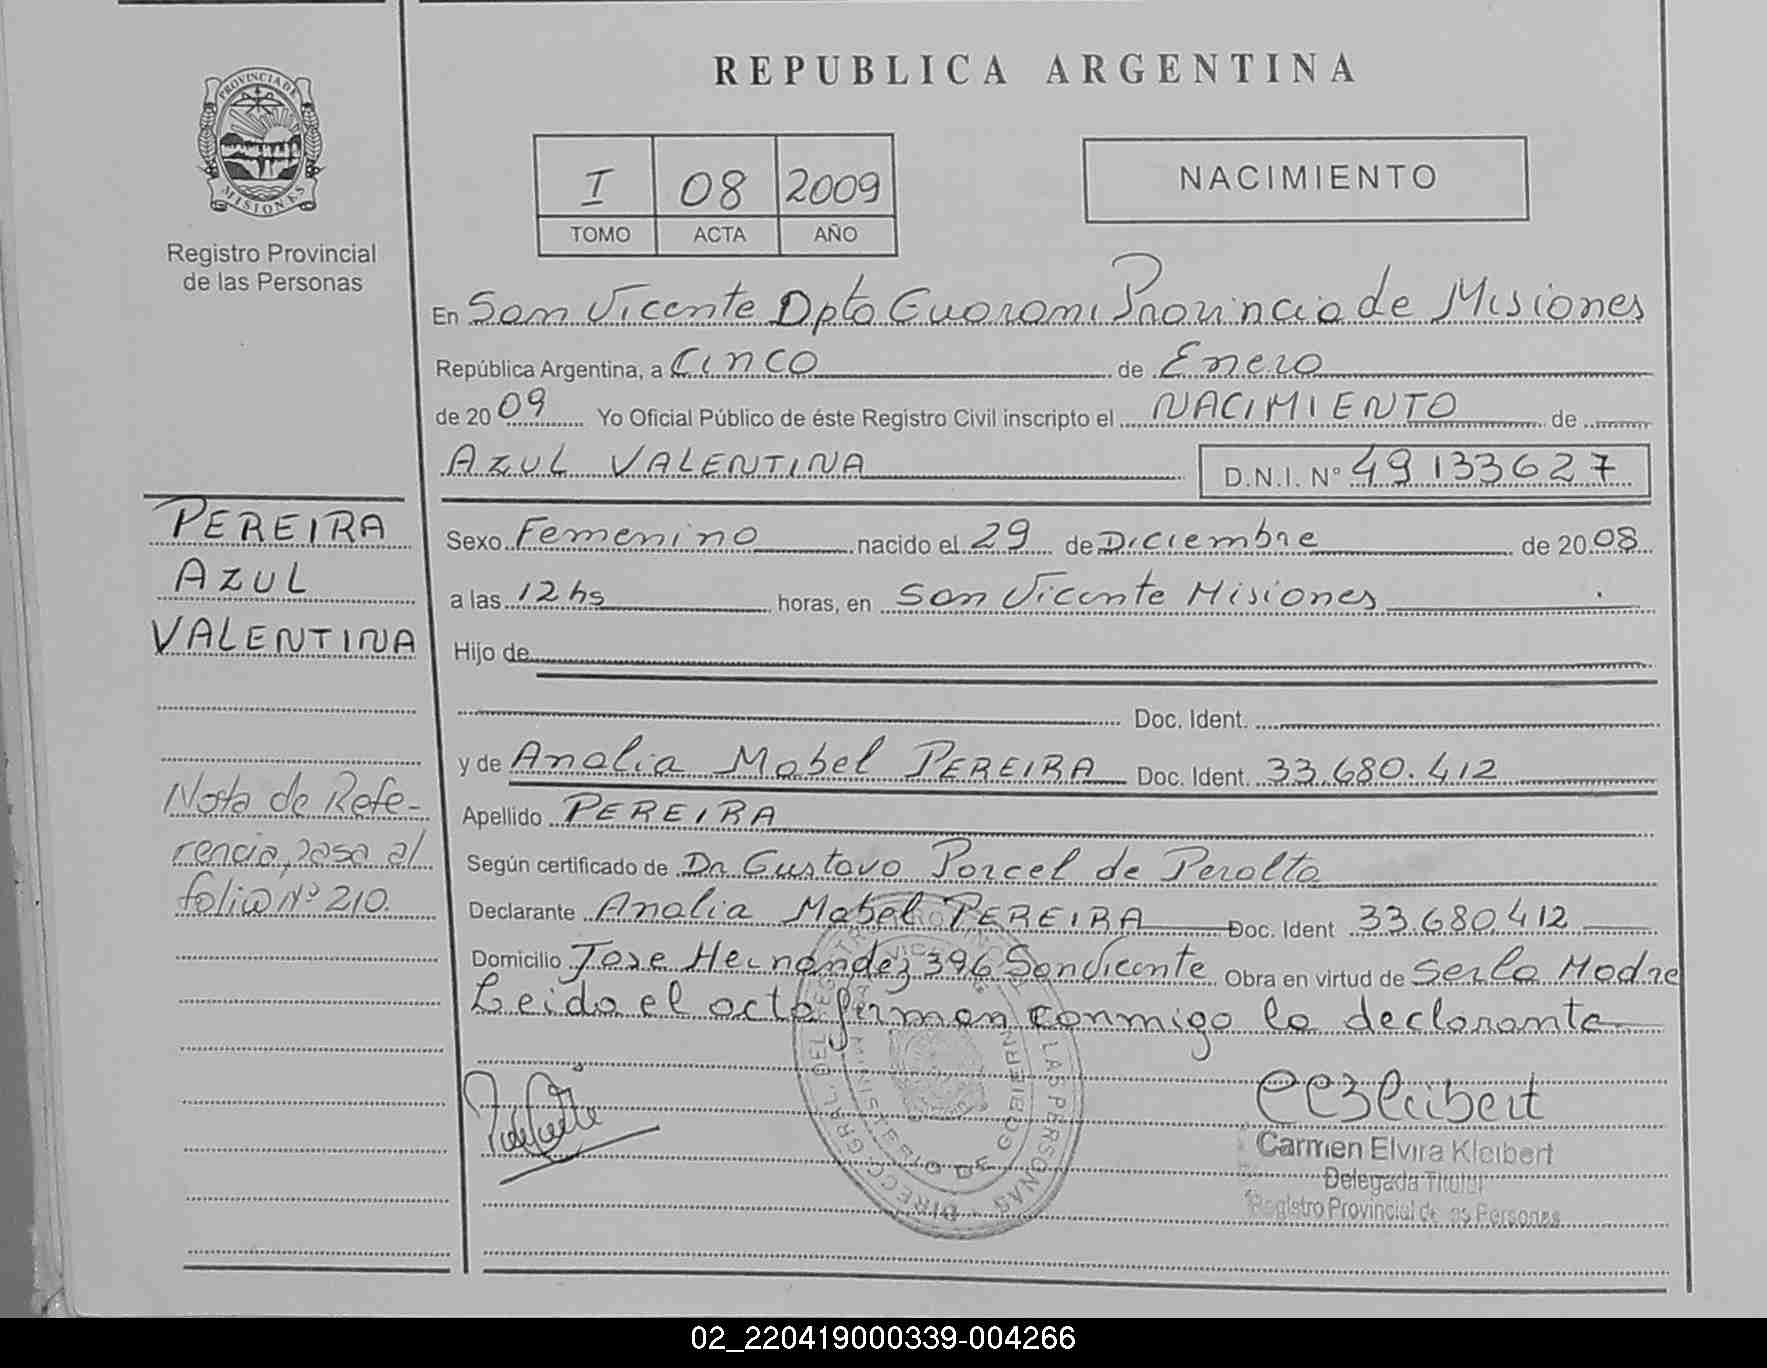 PROVINCIA DE
MISIONES
Registro Provincial
de las Personas
REPUBLICA ARGENTINA
I 08 2009
TOMO ACTA AÑO
NACIMIENTO
En San Vicente Dpto Guarani Provincia de Misiones
República Argentina, a Cinco de Enero
de 2009 Yo Oficial Público de éste Registro Civil inscripto el NACIMIENTO de
AZUL VALENTINA D.N.I. Nº 49133627
PEREIRA
AZUL
VALENTINA
Sexo Femenino nacido el 29 de Diciembre de 2008
a las 12 hs horas, en San Vicente Misiones
Hijo de
Doc. Ident.
y de Analia Mabel PEREIRA Doc. Ident. 33.680.412
Nota de Refe-
rencia, pasa al
folio Nº 210.
Apellido PEREIRA
Según certificado de Dr Gustavo Porcel de Peralta
Declarante Analia Mabel PEREIRA Doc. Ident 33.680.412
Domicilio Jose Hernandez 396 San Vicente Obra en virtud de Ser la Madre
Leida el acta firman conmigo la declarante
Carmen Elvira Kleibert
Delegada Titular
Registro Provincial de las Personas
02_220419000339-004266